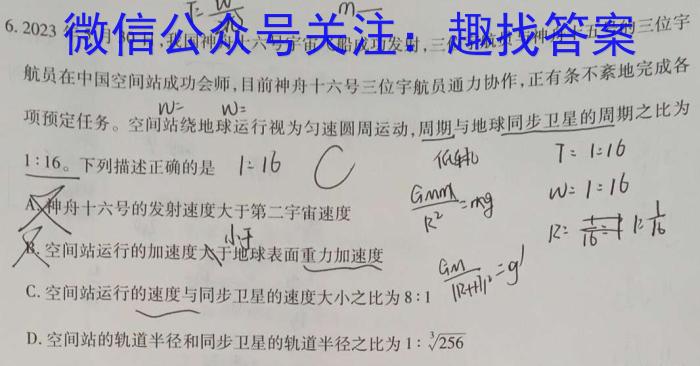 T= W/
m
微信公众号关注：趣找答案
6. 2023 年 月30日,我国神舟十六号宇宙飞船成功发射,三 宇航员 神舟十五号的三位宇
航员在中国空间站成功会师,目前神舟十六号三位宇航员通力协作,正有条不紊地完成各
W= W=
项预定任务。空间站绕地球运行视为匀速圆周运动,周期与地球同步卫星的周期之比为
1∶16。下列描述正确的是 1=16 C
T= 1=16
GMm/R²=mg
W= 1=16
A.神舟十六号的发射速度大于第二宇宙速度
小于
B.空间站运行的加速度大于地球表面重力加速度
GM/(R+H)²=g'
C.空间站运行的速度与同步卫星的速度大小之比为8∶1
D.空间站的轨道半径和同步卫星的轨道半径之比为1∶∛256